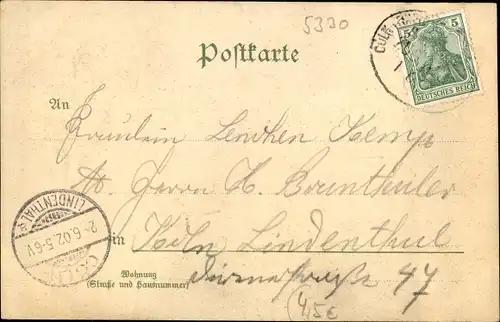 5330
Postkarte
5 5
DEUTSCHES REICH
CÖLN
An
Fräulein Lenchen Kemp
Herrn H.
LINDENTHAL
2. 6. 02. 5-6 V
CÖLN
in Köln Lindenthal
Wohnung
(Straße und Hausnummer)
straße 47
4,5€